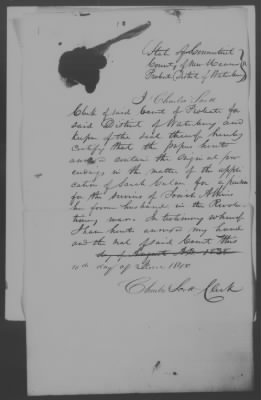 State of Connecticut
County of New Haven
Probate District of Waterbury
I Charles
Clerk of said Court of Probate for
said District of Waterbury and
keeper of the seal thereof hereby
certify that the papers hereto
annexed contain the original pro
ceedings in the matter of the appli
cation of Sarah for a pension
for the services of
her former husband in the Revolu
tionary war. In testimony whereof
I have hereto annexed my hand
and the seal of said Court this
day of August AD 1838
day of June
Charles Clerk